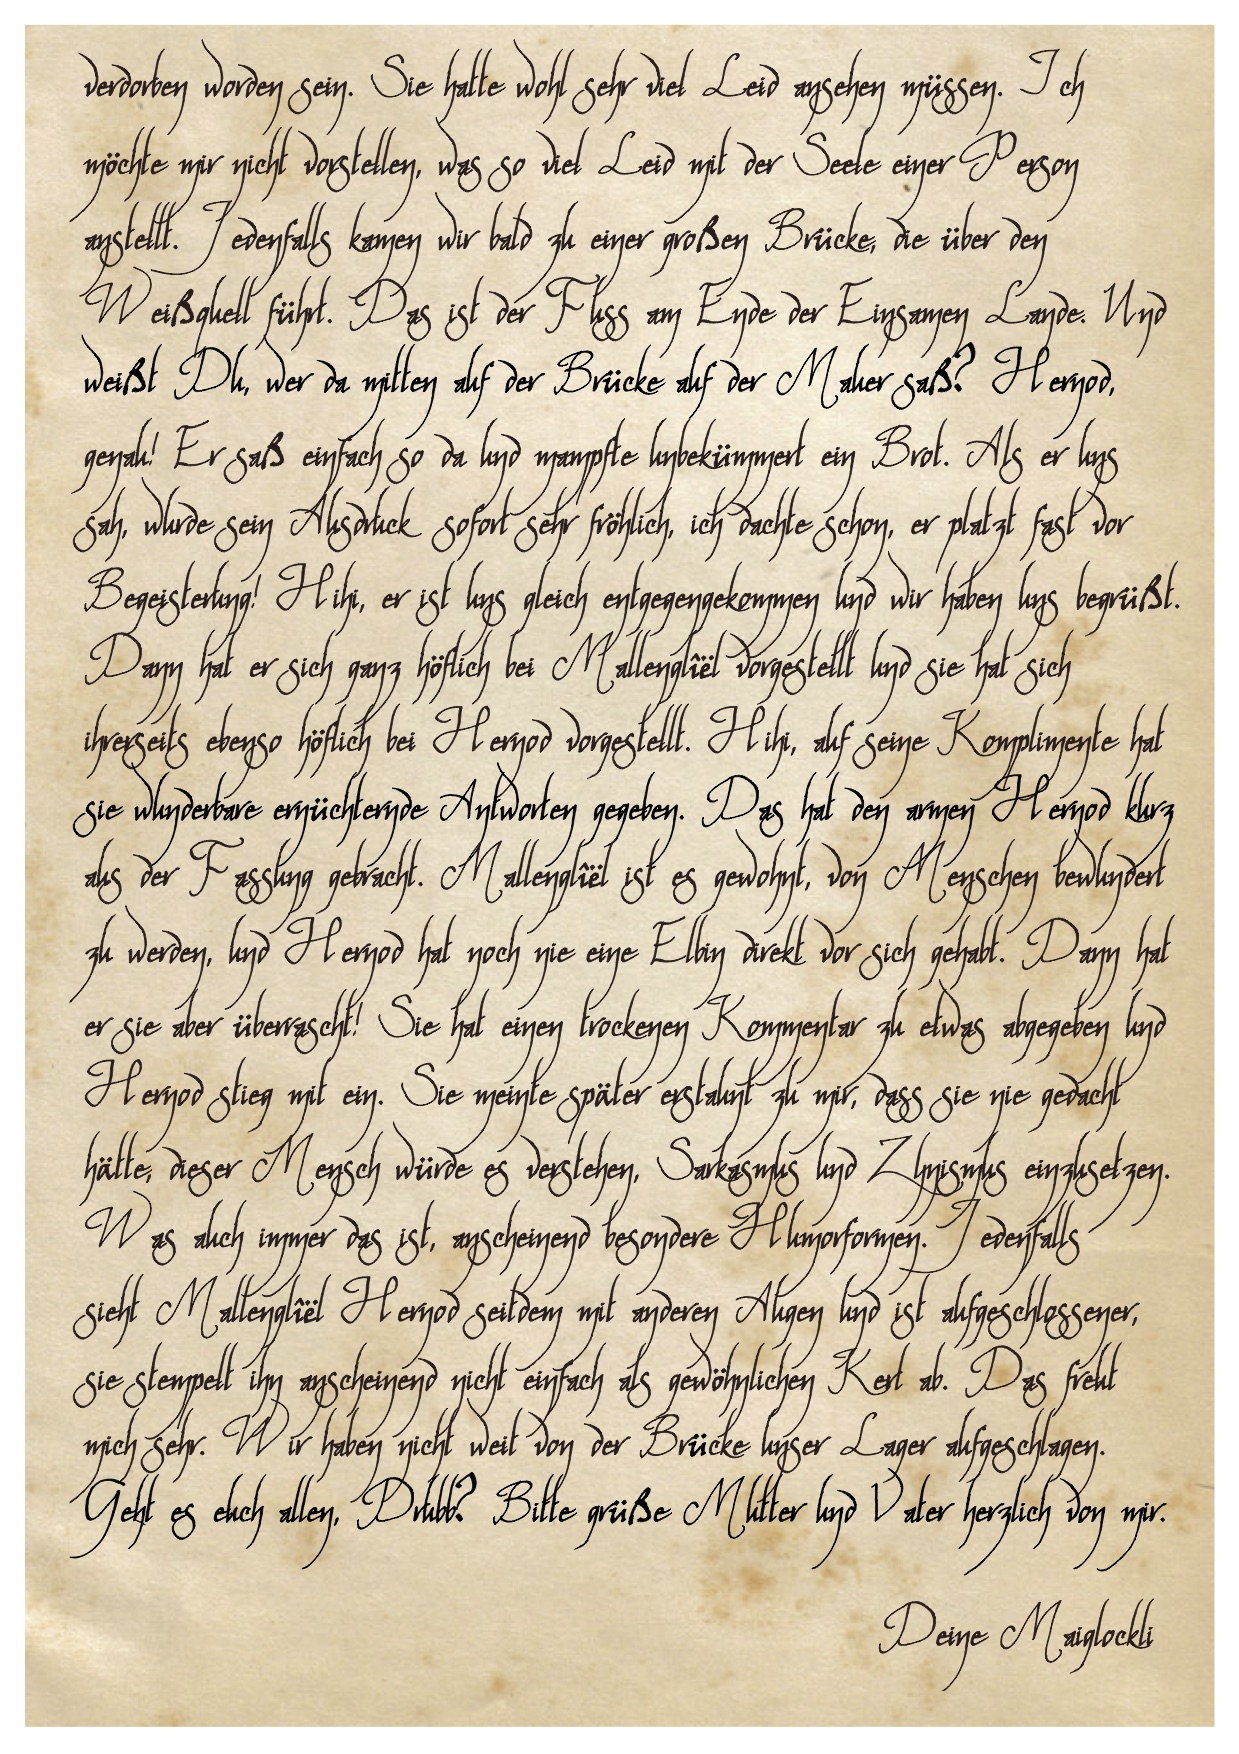 verdorben worden sein. Sie hatte wohl sehr viel Leid ansehen müssen. Ich
möchte mir nicht vorstellen, was so viel Leid mit der Seele einer Person
anstellt. Jedenfalls kamen wir bald zu einer großen Brücke, die über den
Weißquell führt. Das ist der Fluss am Ende der Einsamen Lande. Und
weißt Du, wer da mitten auf der Brücke auf der Mauer saß? Hernod,
genau! Er saß einfach so da und mampfte unbekümmert ein Brot. Als er uns
sah, wurde sein Ausdruck sofort sehr fröhlich, ich dachte schon, er platzt fast vor
Begeisterung! Hihi, er ist uns gleich entgegengekommen und wir haben uns begrüßt.
Dann hat er sich ganz höflich bei Mallenglîël vorgestellt und sie hat sich
ihrerseits ebenso höflich bei Hernod vorgestellt. Hihi, auf seine Komplimente hat
sie wunderbare ernüchternde Antworten gegeben. Das hat den armen Hernod kurz
aus der Fassung gebracht. Mallenglîël ist es gewohnt, von Menschen bewundert
zu werden, und Hernod hat noch nie eine Elbin direkt vor sich gehabt. Dann hat
er sie aber überrascht! Sie hat einen trockenen Kommentar zu etwas abgegeben und
Hernod stieg mit ein. Sie meinte später erstaunt zu mir, dass sie nie gedacht
hätte, dieser Mensch würde es verstehen, Sarkasmus und Zhnismus einzusetzen.
Was auch immer das ist, anscheinend besondere Humorformen. Jedenfalls
sieht Mallenglîël Hernod seitdem mit anderen Augen und ist aufgeschlossener,
sie stempelt ihn anscheinend nicht einfach als gewöhnlichen Kerl ab. Das freut
mich sehr. Wir haben nicht weit von der Brücke unser Lager aufgeschlagen.
Geht es euch allen, Drubb? Bitte grüße Mutter und Vater herzlich von mir.
Deine Maiglockli